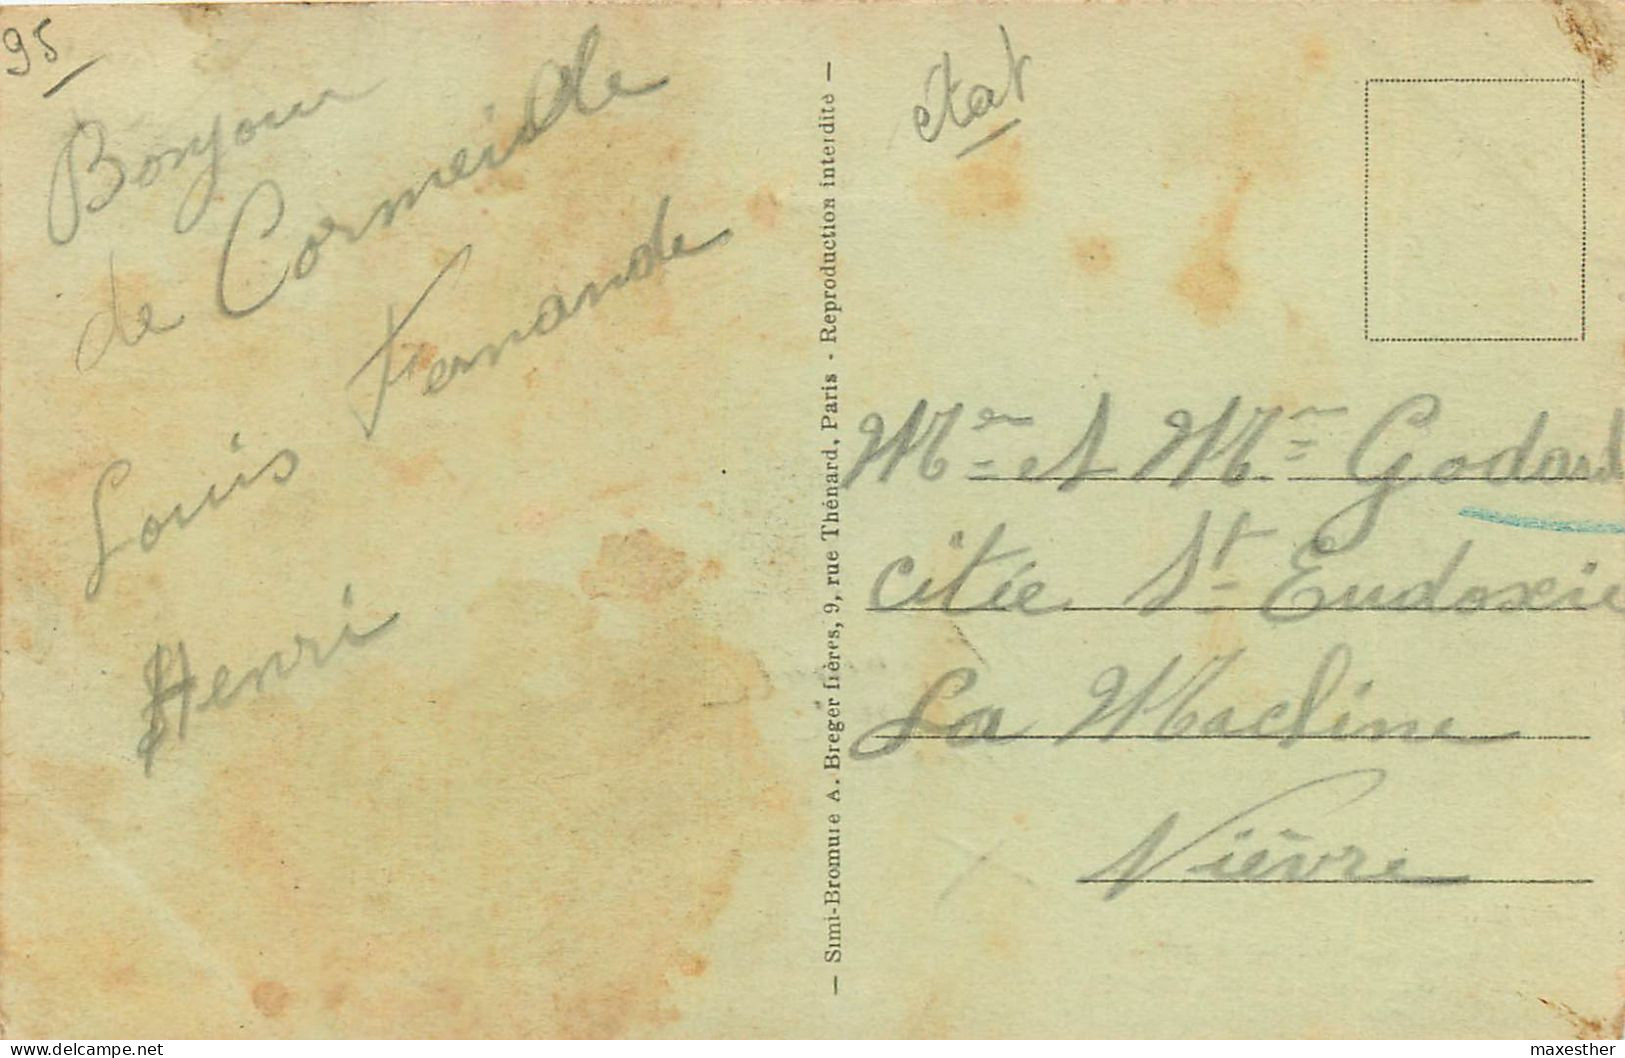 95
Bonjour
de Cormeille
Fernande
Louis
Henri
— Simi-Bromure A. Breger frères, 9, rue Thénard, Paris - Reproduction interdite —
état
Mr et Mme Godard
citée St Eudoxie
La Machine
Nièvre
Delcampe.net
maxesther